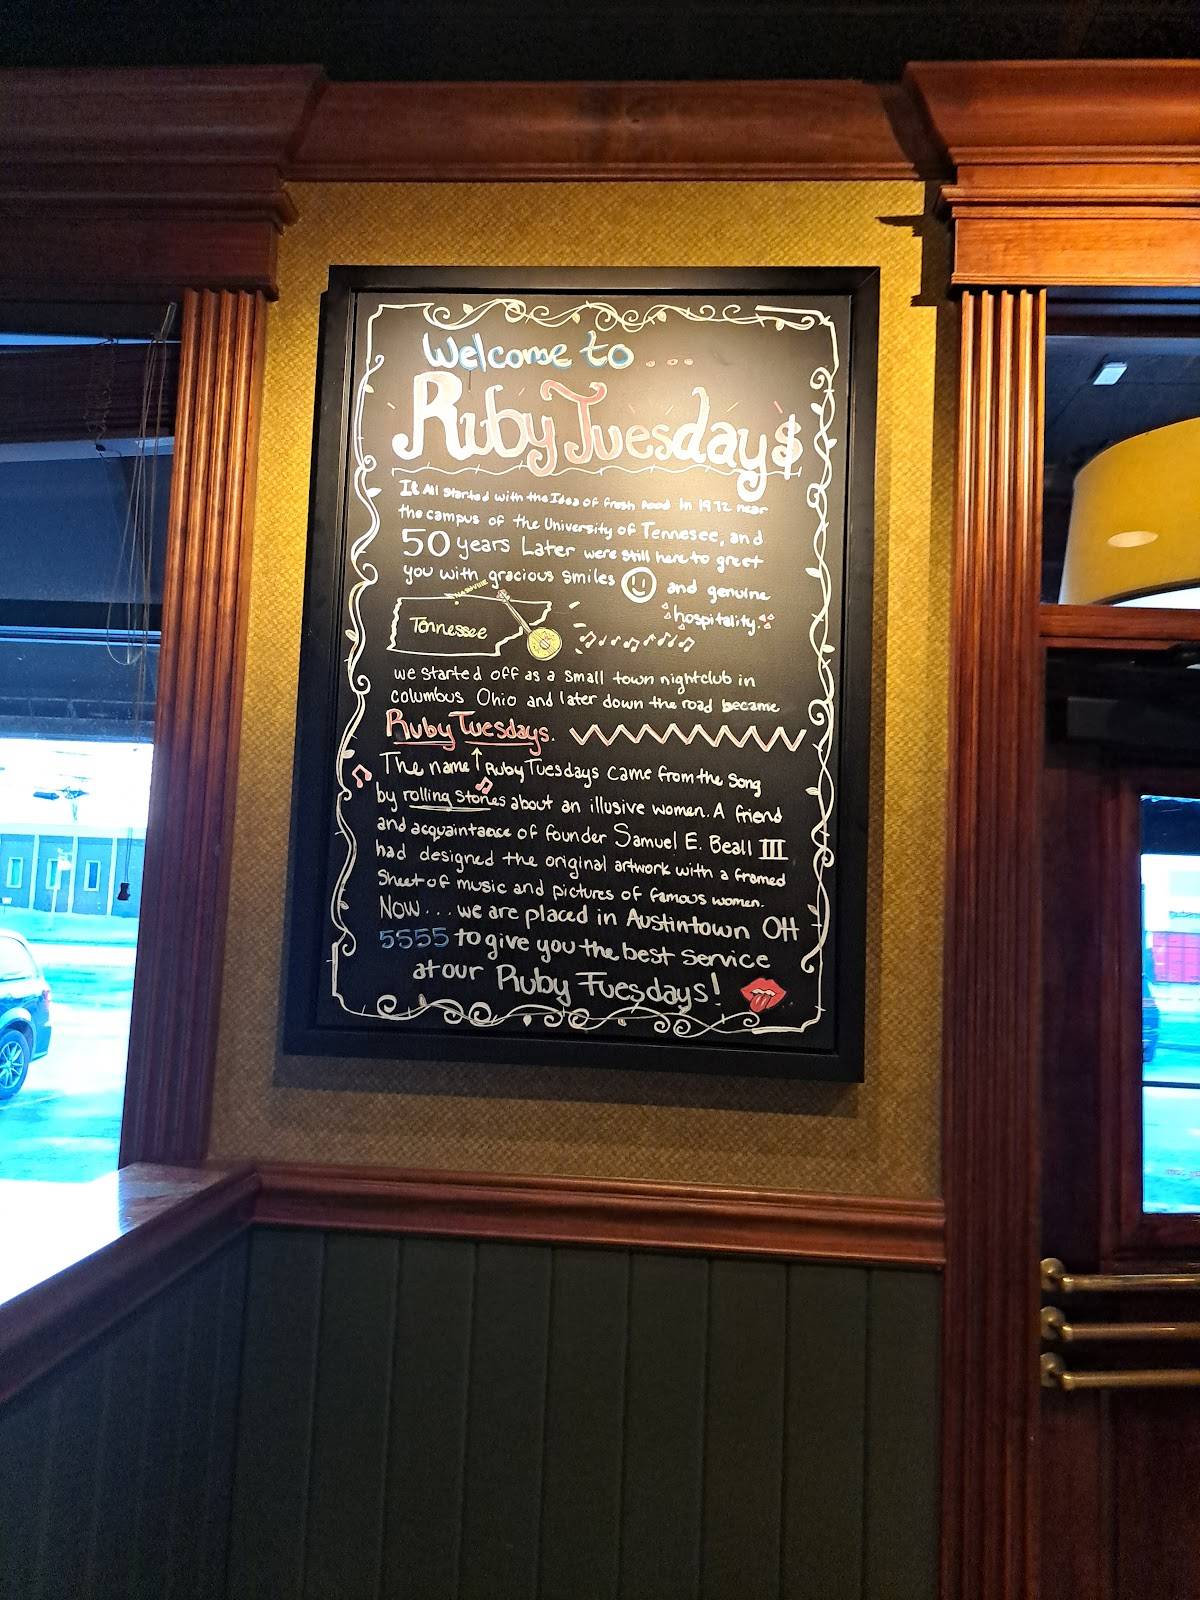 Welcome to...
Ruby Tuesday's
It All started with the Idea of fresh food in 1972 near
the campus of the University of Tennesee, and
50 years Later were still here to greet
you with gracious smiles and genuine
hospitality.
NASHVILLE
Tennessee
we started off as a small town nightclub in
columbus Ohio and later down the road became
Ruby Tuesdays.
The name Ruby Tuesdays came from the song
by rolling stones about an illusive women. A friend
and acquaintance of founder Samuel E. Beall III
had designed the original artwork with a framed
Sheet of music and pictures of famous women.
Now... we are placed in Austintown OH
5555 to give you the best service
at our Ruby Tuesdays!